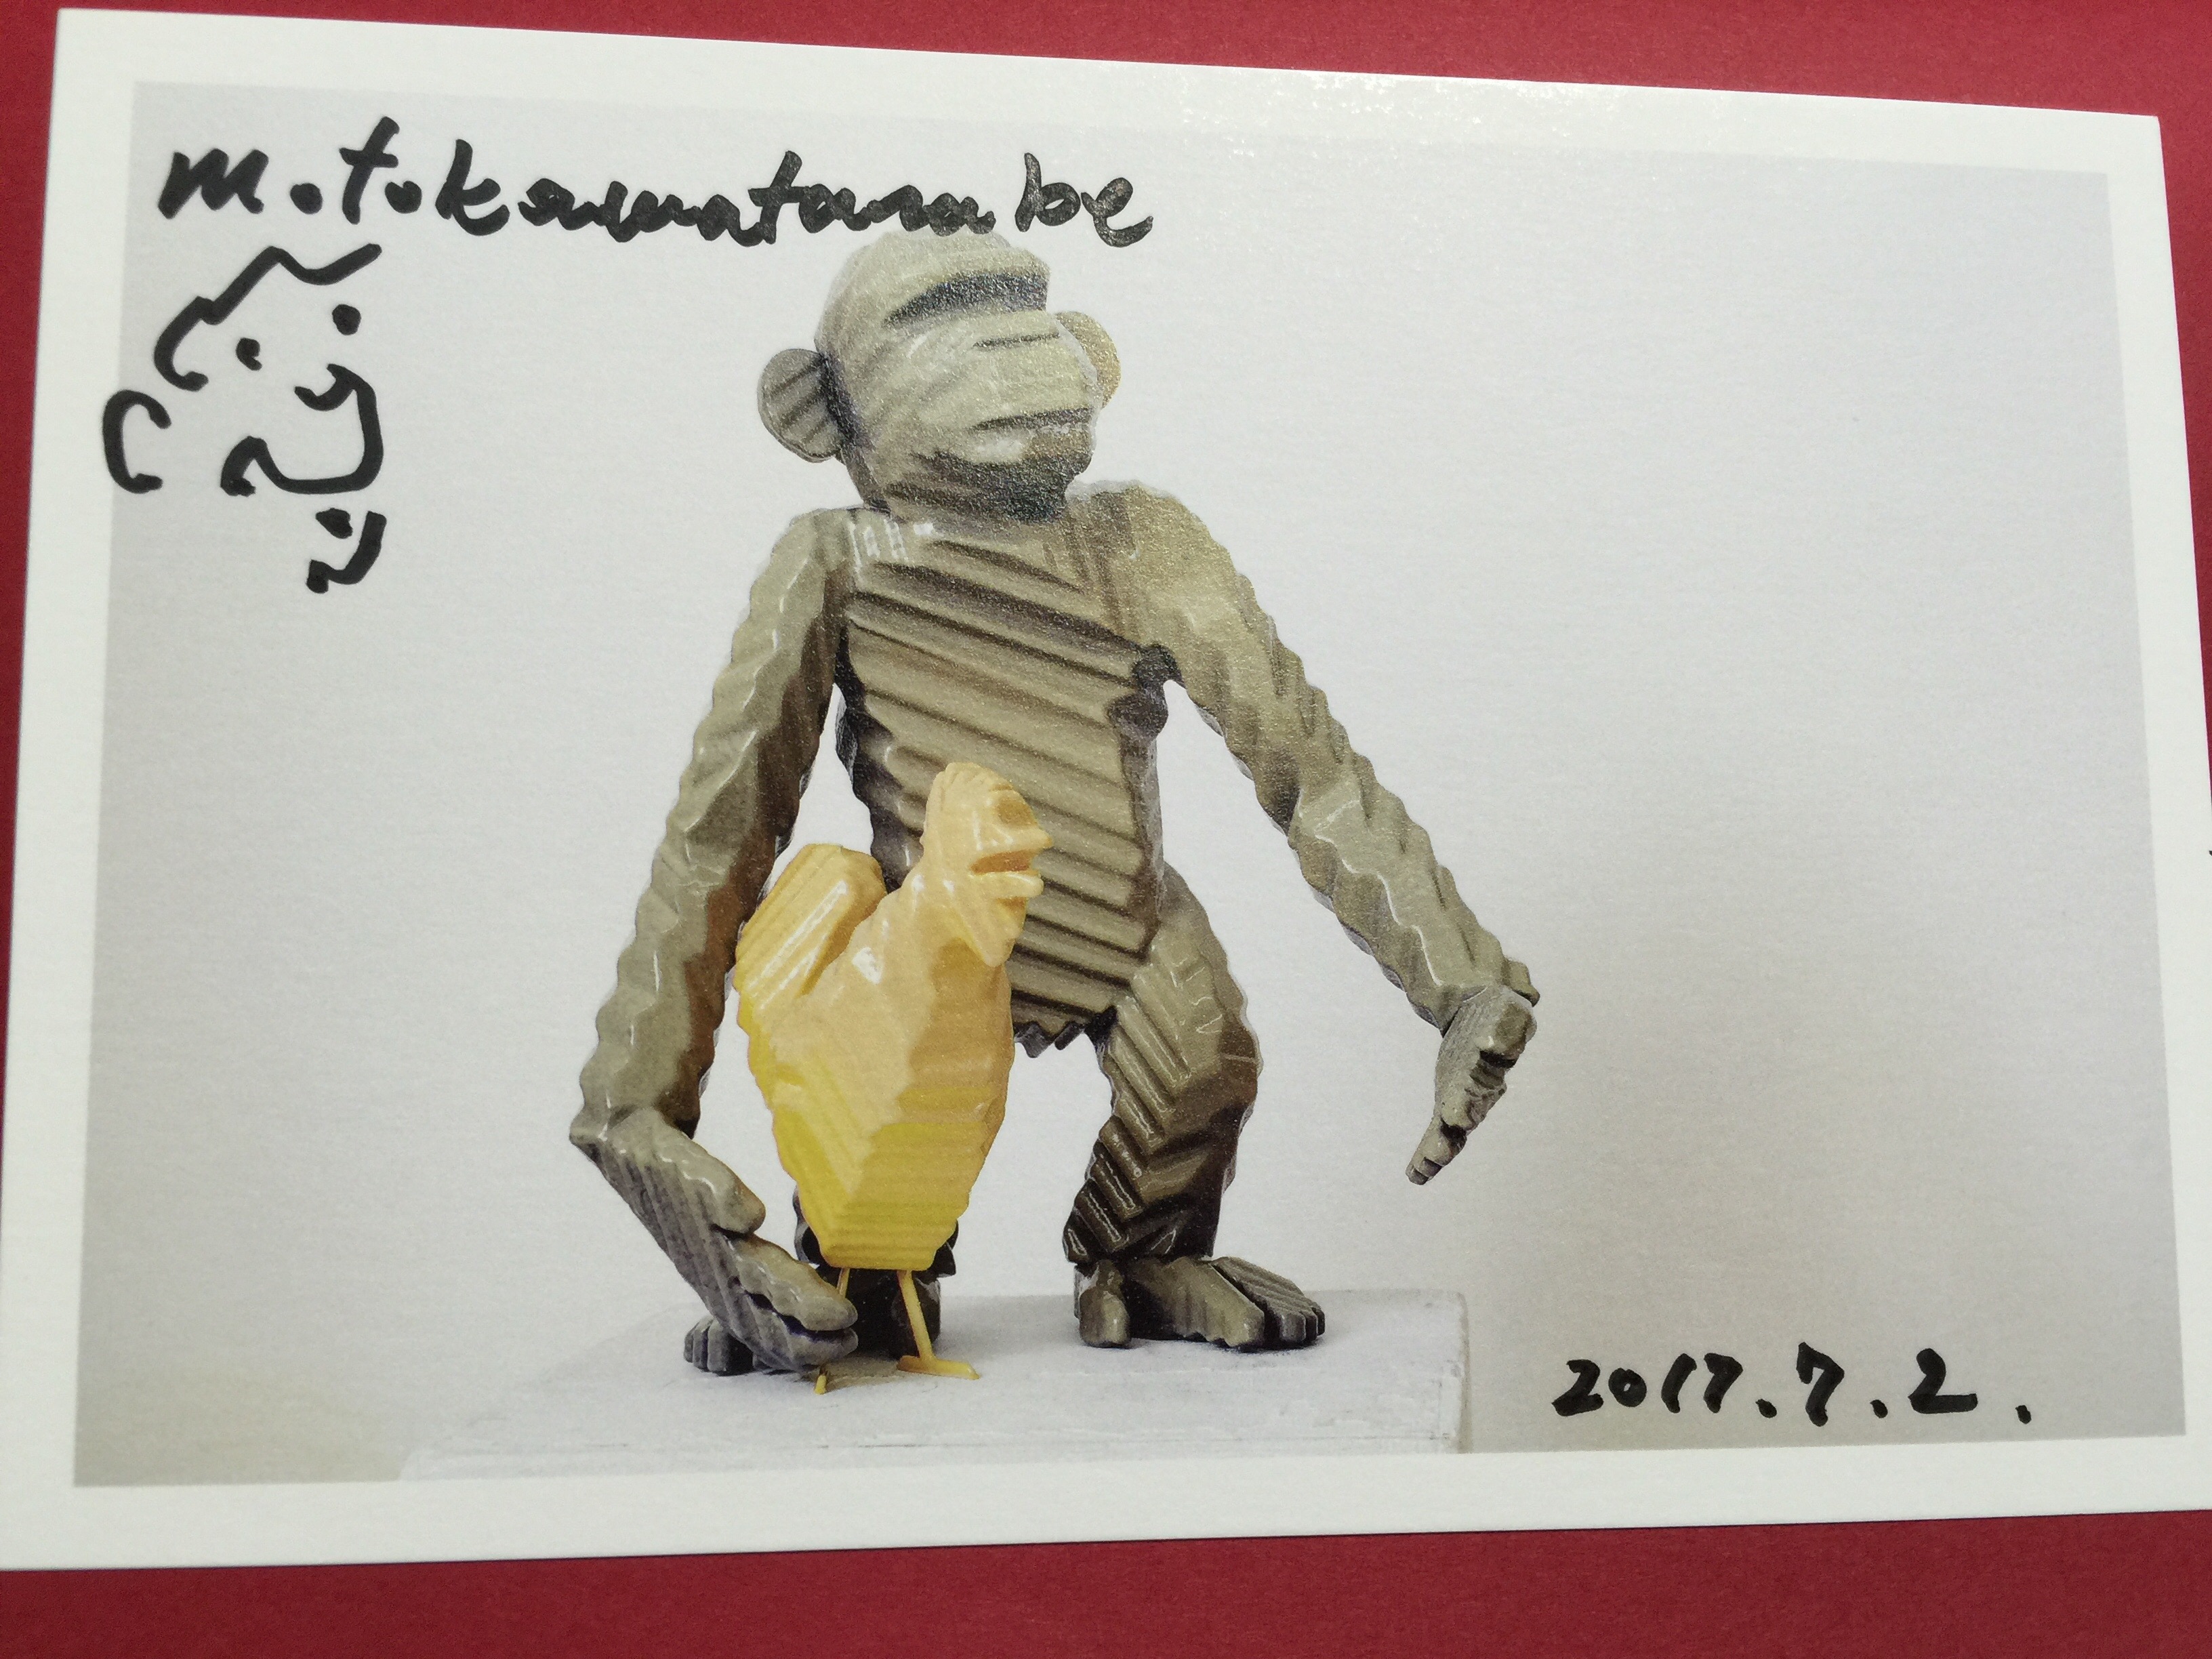 motoka watanabe
2017.7.2.